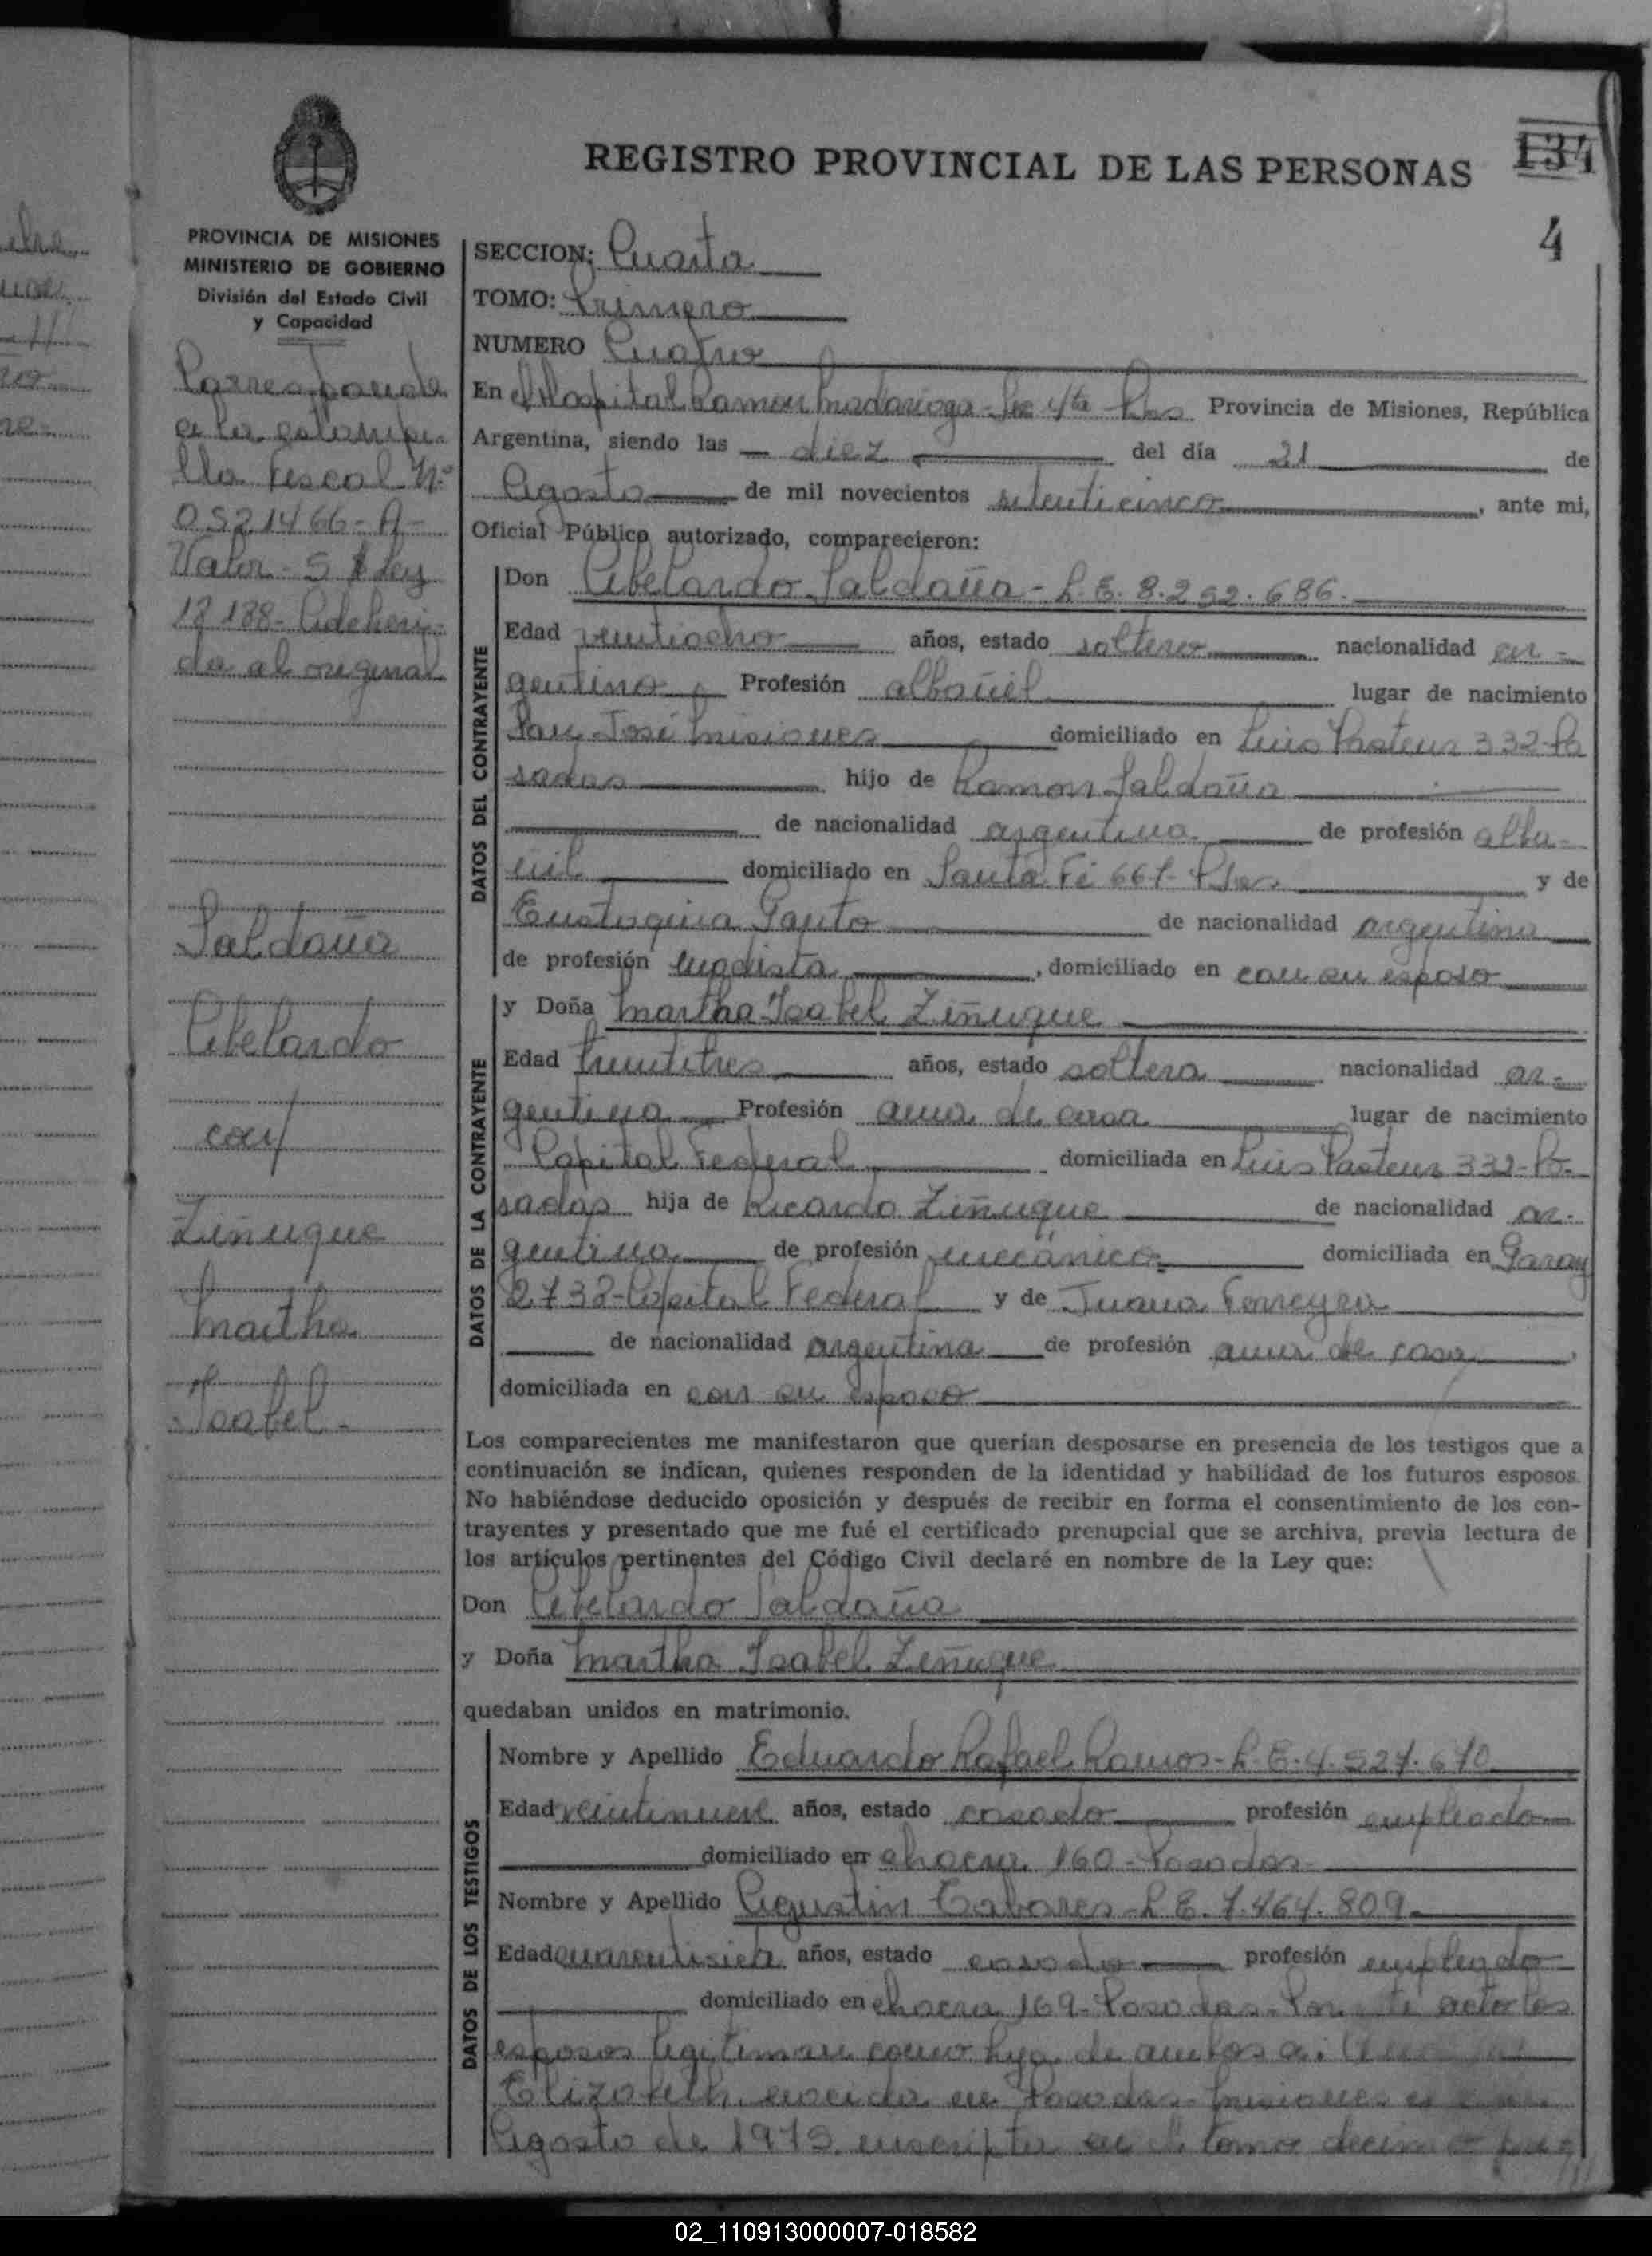 REGISTRO PROVINCIAL DE LAS PERSONAS
134
4
PROVINCIA DE MISIONES
MINISTERIO DE GOBIERNO
División del Estado Civil
y Capacidad
Corresponde
a la estampi
lla Fiscal Nº
0521466-A-
Valor - 5 $ Ley
18188- Adheri-
da al original
Saldaña
Abelardo
con/
Ziñuque
Martha
Isabel-
SECCION: Cuarta
TOMO: Primero
NUMERO Cuatro
En el Hospital Ramon Madariaga - Sec 4ta Pdas Provincia de Misiones, República
Argentina, siendo las - diez del día 21 de
Agosto de mil novecientos setenticinco, ante mi,
Oficial Público autorizado, comparecieron:
DATOS DEL CONTRAYENTE
Don Abelardo Saldaña - L.E. 8.252.686.
Edad veintiocho años, estado soltero nacionalidad ar-
gentino Profesión albañil lugar de nacimiento
San José Misiones domiciliado en Luis Pasteur 332-Po
sadas hijo de Ramon Saldaña
de nacionalidad argentina de profesión alba-
ñil domiciliado en Santa Fé 667- Pdas y de
Eustaquia Pinto de nacionalidad argentina
de profesión, domiciliado en con su esposo
DATOS DE LA CONTRAYENTE
y Doña Martha Isabel Ziñuque
Edad treintitres años, estado soltera nacionalidad ar-
gentina Profesión ama de casa lugar de nacimiento
Capital Federal domiciliada en Luis Pasteur 332-Po-
sadas hija de Ricardo Ziñuque de nacionalidad ar-
gentina de profesión mecánico domiciliada en Garay
2732-Capital Federal y de Juana Ferreyra
de nacionalidad argentina de profesión ama de casa,
domiciliada en con su esposo
Los comparecientes me manifestaron que querían desposarse en presencia de los testigos que a
continuación se indican, quienes responden de la identidad y habilidad de los futuros esposos.
No habiéndose deducido oposición y después de recibir en forma el consentimiento de los con-
trayentes y presentado que me fué el certificado prenupcial que se archiva, previa lectura de
los artículos pertinentes del Código Civil declaré en nombre de la Ley que:
Don Abelardo Saldaña
y Doña Martha Isabel Ziñuque
quedaban unidos en matrimonio.
DATOS DE LOS TESTIGOS
Nombre y Apellido Eduardo Rafael Ramos - L.E. 4.527.670
Edad veintinueve años, estado casado profesión empleado
domiciliado en chacra 160 - Posadas-
Nombre y Apellido Agustin Tabares - L.E. 7.464.809-
Edad cuarentisiete años, estado casado profesión empleado
domiciliado en chacra 169- Posadas- Por este acto los
esposos legitiman como hija de ambos a:
Elizabeth nacida en Posadas- Misiones
Agosto de 1975 inscripta en el tomo decimo
02_110913000007-018582